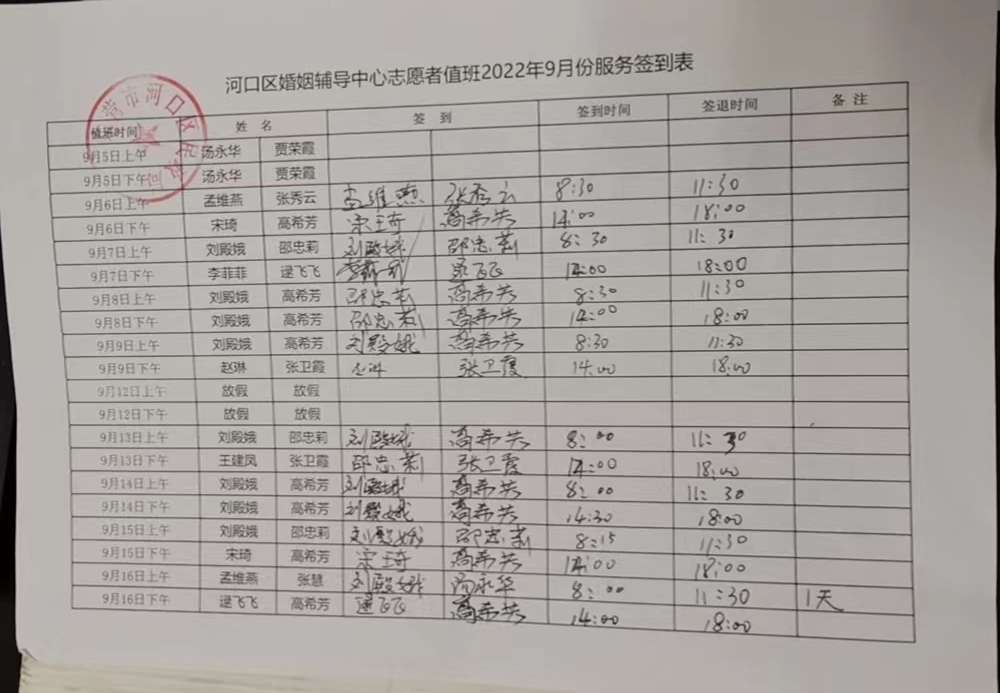 河口区婚姻辅导中心志愿者值班2022年9月份服务签到表
值班时间 姓 名 签 到 签到时间 签退时间 备 注
9月5日上午 汤永华 贾荣霞
9月5日下午 汤永华 贾荣霞
9月6日上午 孟维燕 张秀云 孟维燕 张秀云 8:30 11:30
9月6日下午 宋琦 高希芳 宋琦 高希芳 14:00 18:00
9月7日上午 刘殿娥 邵忠莉 刘殿娥 邵忠莉 8:30 11:30
9月7日下午 李菲菲 逯飞飞 14:00 18:00
9月8日上午 刘殿娥 高希芳 邵忠莉 高希芳 8:30 11:30
9月8日下午 刘殿娥 高希芳 邵忠莉 高希芳 14:00 18:00
9月9日上午 刘殿娥 高希芳 刘殿娥 高希芳 8:30 11:30
9月9日下午 赵琳 张卫霞 张卫霞 14:00 18:00
9月12日上午 放假 放假
9月12日下午 放假 放假
9月13日上午 刘殿娥 邵忠莉 刘殿娥 高希芳 8:00 11:30
9月13日下午 王建凤 张卫霞 邵忠莉 张卫霞 14:00 18:00
9月14日上午 刘殿娥 高希芳 刘殿娥 高希芳 8:00 11:30
9月14日下午 刘殿娥 高希芳 刘殿娥 高希芳 14:30 18:00
9月15日上午 刘殿娥 邵忠莉 刘殿娥 邵忠莉 8:15 11:30
9月15日下午 宋琦 高希芳 宋琦 高希芳 14:00 18:00
9月16日上午 孟维燕 张慧 刘殿娥 8:00 11:30 1天
9月16日下午 逯飞飞 高希芳 逯飞飞 高希芳 14:00 18:00